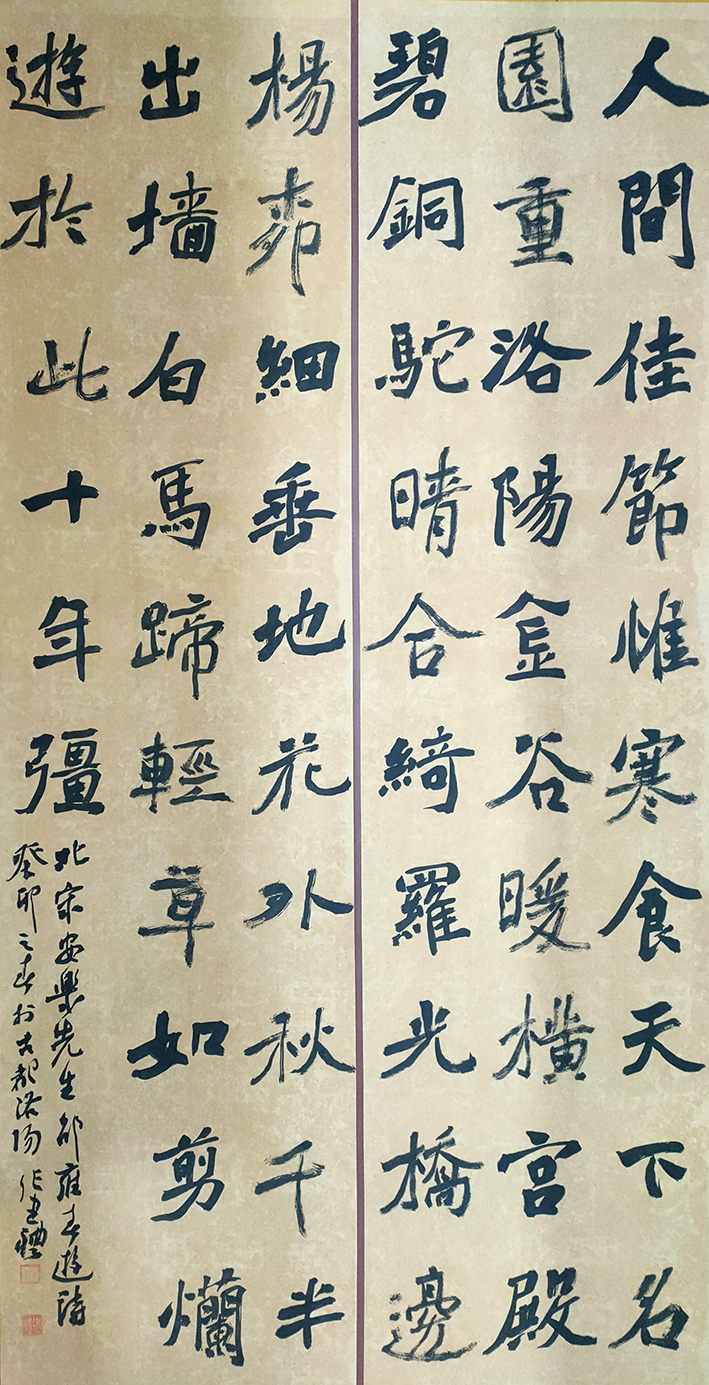 人間佳節惟寒食天下名
園重洛陽金谷暖橫宮殿
碧銅駝晴合綺羅光橋邊
楊柳細垂地花外秋千半
出墻白馬蹄輕草如剪爛
遊於此十年彊
北宋安樂先生邵雍春遊詩
癸卯之春於古都洛陽